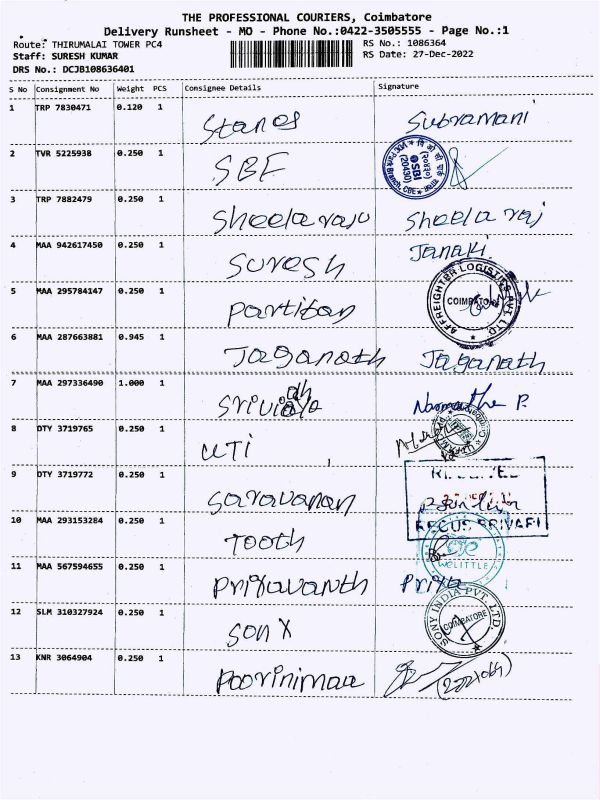 THE PROFESSIONAL COURIERS, Coimbatore
Delivery Runsheet - MO - Phone No.:0422-3505555 - Page No.:1
Route: THIRUMALAI TOWER PC4 RS No.: 1086364
Staff: SURESH KUMAR RS Date: 27-Dec-2022
DRS No.: DCJB108636401
S No Consignment No Weight PCS Consignee Details Signature
1 TRP 7830471 0.120 1 Stanes Subramani
2 TVR 5225938 0.250 1 SBI
SBI (20430)
3 TRP 7882479 0.250 1 Sheela raju Sheela raj
4 MAA 942617450 0.250 1 Suresh Janaki
5 MAA 295784147 0.250 1 Partiban
AFFREIGHTER LOGISTICS PVT. LTD. COIMBATORE
6 MAA 287663881 0.945 1 Jaganath Jaganath
7 MAA 297336490 1.000 1 Srividya
8 DTY 3719765 0.250 1 UTI
9 DTY 3719772 0.250 1 Saravanan
10 MAA 293153284 0.250 1 Tooth
WELITTLE
11 MAA 567594655 0.250 1 Priyavanth Priya
12 SLM 310327924 0.250 1 Sony
SONY INDIA PVT. LTD. COIMBATORE
13 KNR 3064904 0.250 1 Poorinimaa